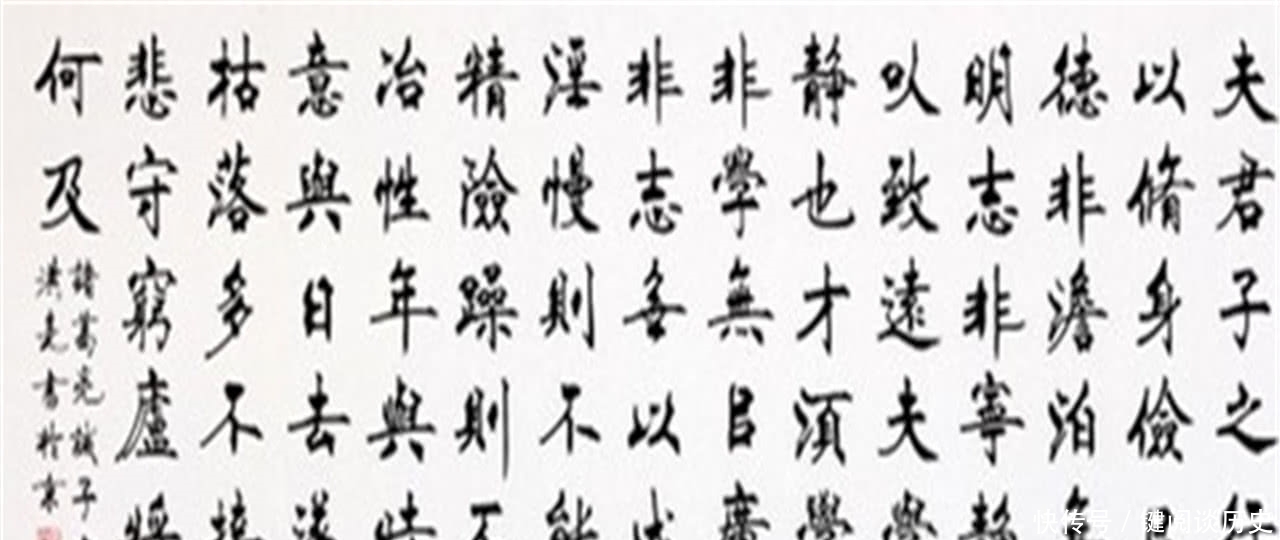 夫君子之行
以脩身儉
德非澹泊
明志非寧靜
以致遠夫學
靜也才須學
非學無㠯廣
非志無以成
淫慢則不能
精險躁則不
冶性年與時
意與日去遂
枯落多不接
悲守窮廬將
何及
諸葛亮誡子
亮書於京
快传号/键闻谈历史